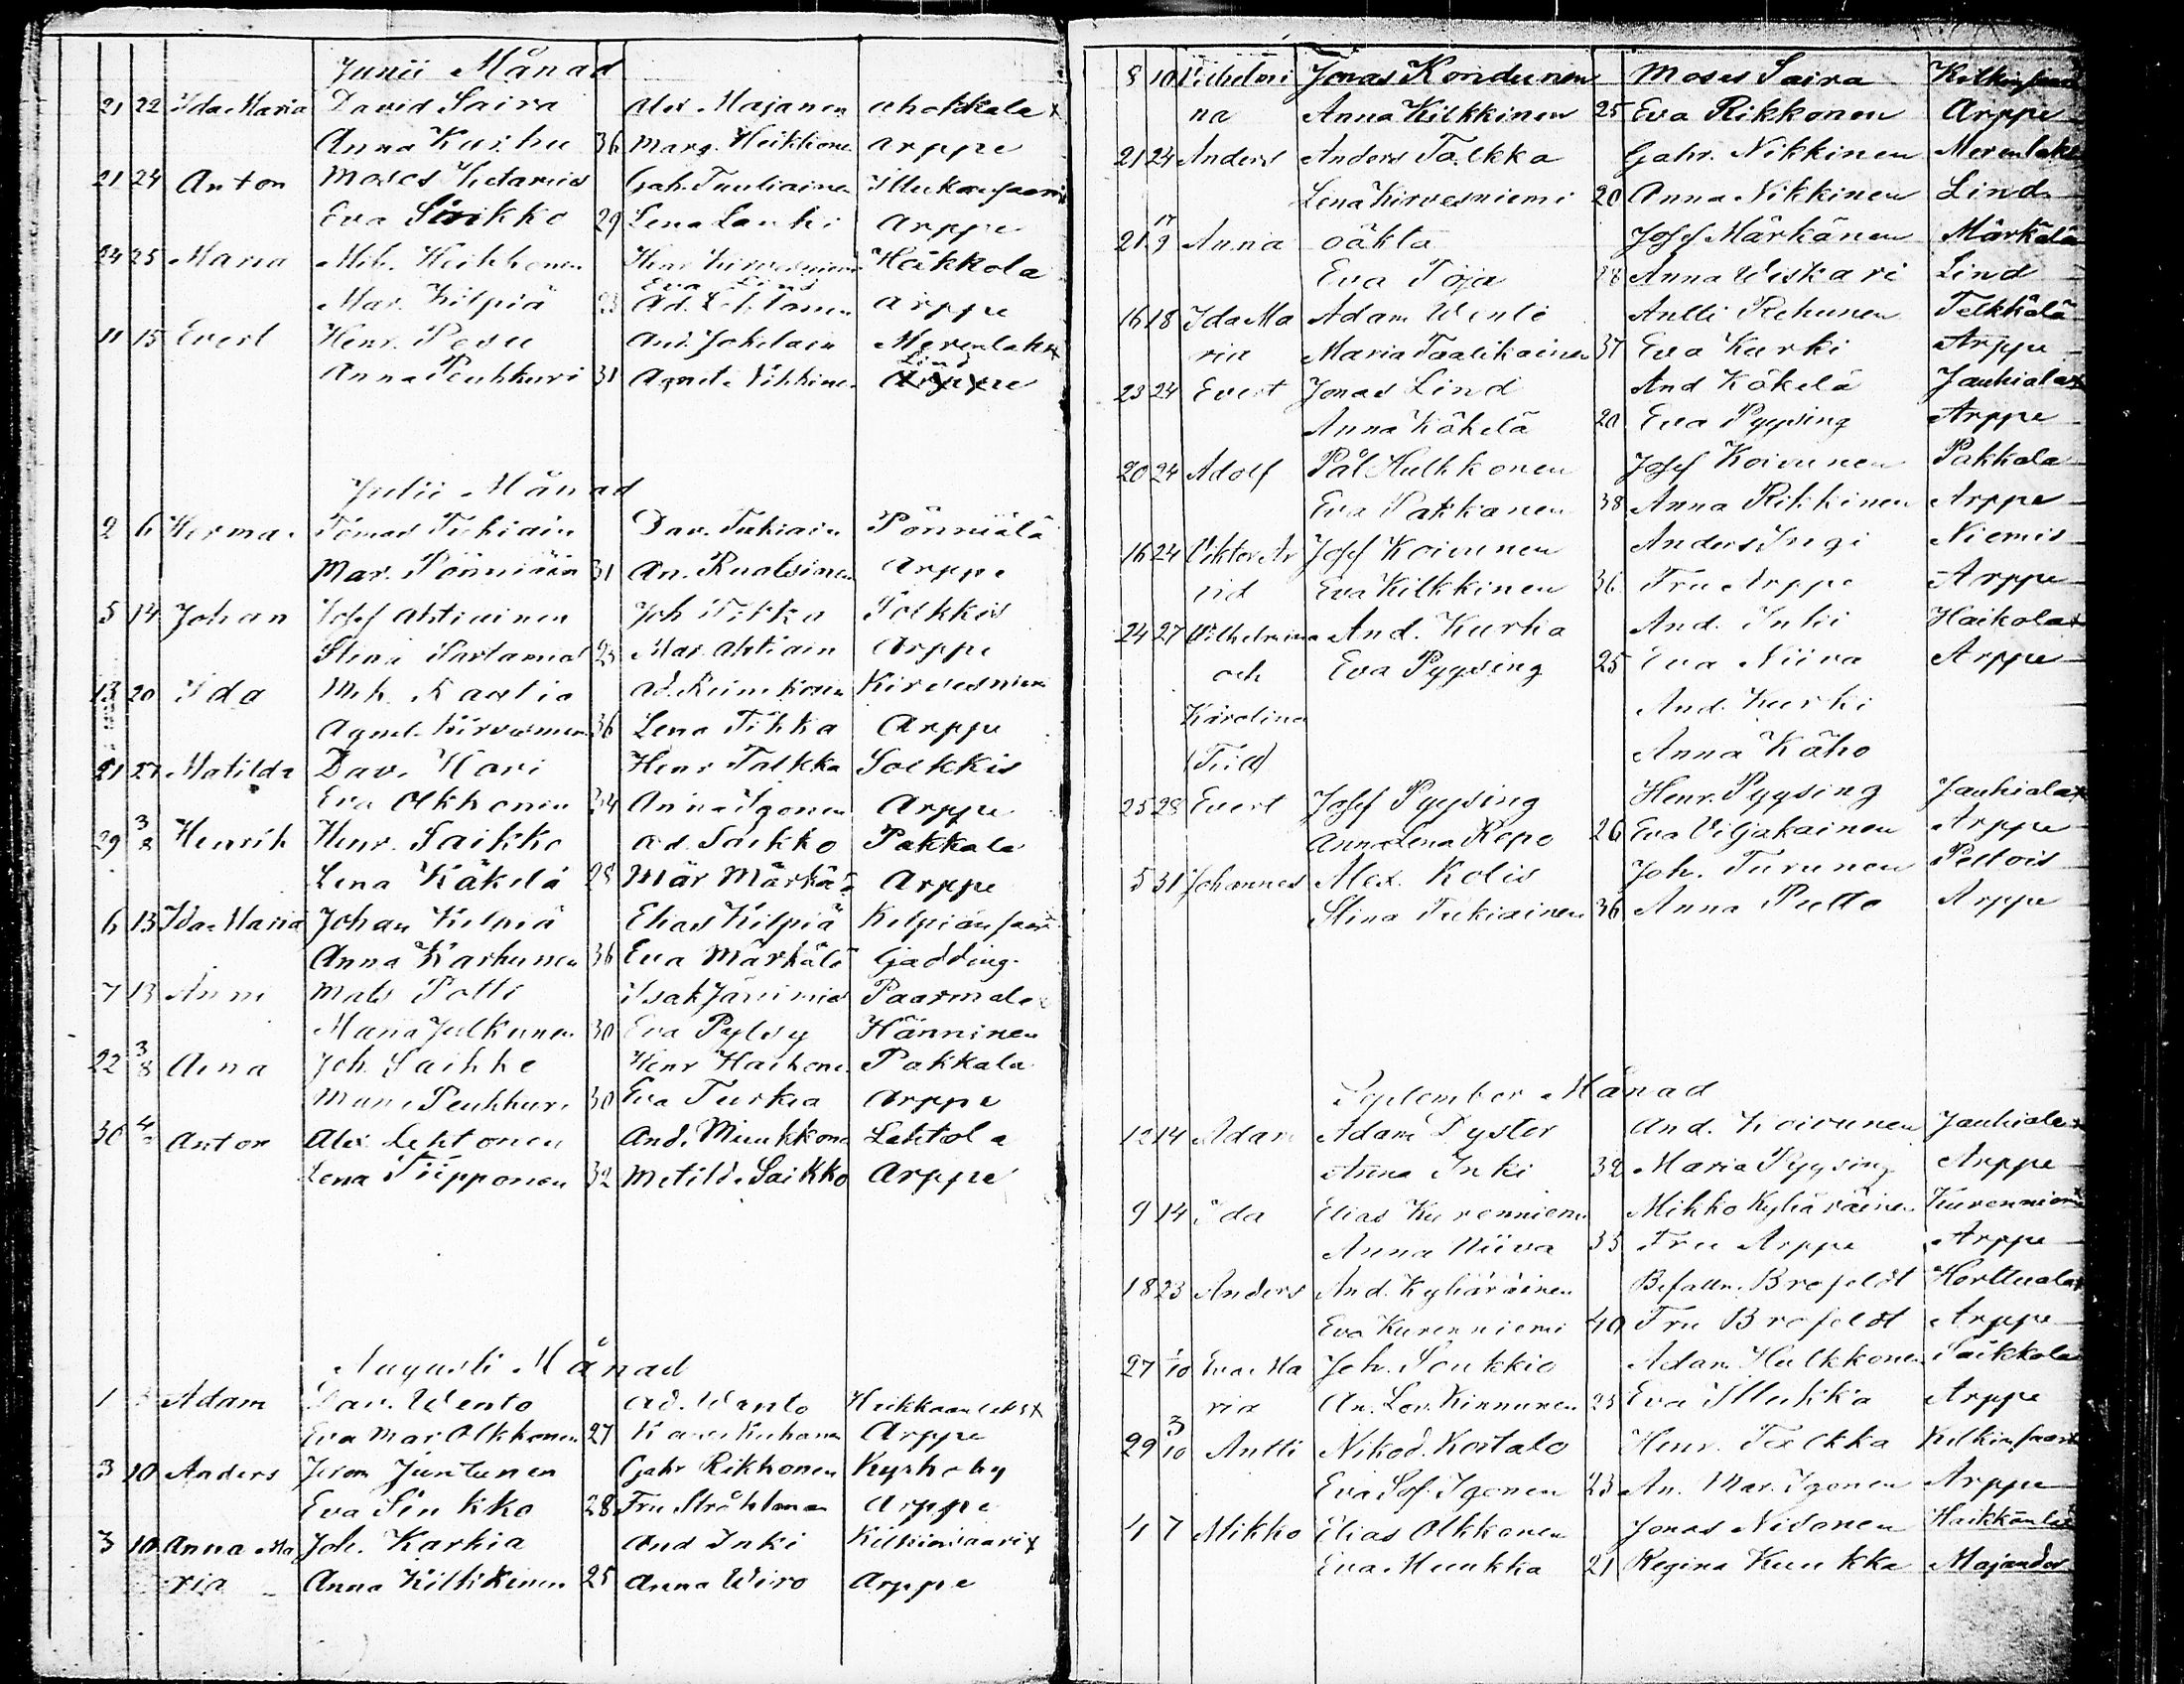 Junii Månad
21 22 Ida Maria David Saira Alex Majanen Ahokkala x
Anna Kurhu 36 Marg. Heikkone Arppe
21 24 Anton Moses Hetamies Gab. Tuuliainen
Eva Sirkko 29 Lena Lauki Arppe
24 25 Maria Mih. Heikkonen Henr Kirvesniemi Häkkola
Eva Lind
Mar. Kilpiä 23 Ad. Lehtonen Arppe
11 15 Evert Henr. Pesu And. Jokelain Merenlaks x
Lind
Anna Peuhkuri 31 Agneta Nikkinen Arppe
Julii Månad
2 6 Herman Tomas Tukiain Dav. Tukiain Pönniälä
Mar. Pönniäin 31 An. Ruotsinen Arppe
5 14 Johan Josef Ahtiainen Joh Tikka Solkkis
Stina Partamies 23 Mar. Ahtiain Arppe
13 20 Ida Mih. Rastia Ad. Reinikain Kirvesniemi
Agnet. Kirvesniem 36 Lena Tikka Arppe
21 27 Matilda Dav. Kari Henr Talkka Solkkis
Eva Olkkonen 24 Anna Igonen Arppe
29 3/8 Henrik Henr. Saikko Ad. Saikko Pakkala
Lena Käkelä 28 Mar Märkä Arppe
6 13 Ida Maria Johan Kilpiä Elias Kilpiä Kilpiänsaari
Anna Karhunen 36 Eva Märkälä Gadding
7 13 Anni Mats Potti Isak Jänimies Paarmala
Maria Julkunen 30 Eva Pylsy Hänninen
22 3/8 Aina Joh. Saikko Henr Haikone Pakkala
Maria Peuhkuri 30 Eva Turkia Arppe
30 4 Anton Alex Lehtonen And. Muukkone Lahtola
Lena Tiipponen 32 Matilda Saikko Arppe
Augusti Månad
1 Adam Dav. Wento Ad. Wento Haikkaanlaks x
Eva Mar Olkkonen 27 Arppe
3 10 Anders Jerom Juntunen Gabr Rikkonen Kyrkoby
Eva Sinkko 28 Fru Ståhlman Arppe
3 10 Anna Ma Joh. Karhia And Inki Kilkinsaari x
ria Anna Kilkkinen 25 Anna Wiro Arppe
8 10 Vilhelmi Jonas Kondunen Moses Saira Kilkinsaari
na Anna Kilkkinen 25 Eva Rikkonen Arppe
21 24 Anders Anders Talkka Gabr. Nikkinen Merenlaks
Lena Kirvesniemi 20 Anna Nikkinen Lind
21 17/9 Anna oäkta Josef Märkänen Märkälä
Eva Toja 28 Anna Wiskari Lind
16 18 Ida Ma Adam Wento Antti Rehunen Telkkälä
ria Maria Taalikainen 37 Eva Kurki Arppe
23 24 Evert Jonas Lind And Käkelä Jauhiala x
Anna Käkelä 20 Eva Pyysing Arppe
20 24 Adolf Pål Hulkkonen Josef Koivunen Pakkala
Eva Pakkanen 38 Anna Rikkinen Arppe
16 24 Viktor Ar Josef Koivunen Anders Ingi Niemis
vid Eva Kilkkinen 36 Fru Arppe Arppe
24 27 Vilhelmina And. Kurha And. Inki Haikola x
och Eva Pyysing 25 Eva Niiva Arppe
Karolina And. Kurki
(Tvill) Anna Käho
25 28 Evert Josef Pyysing Henr. Pyysing Jauhiala x
Anna Lena Repo 26 Eva Viljakainen Arppe
5 31 Johannes Alex. Kolis Joh. Turunen Peltois
Stina Tukiainen 36 Anna Putto Arppe
September Månad
12 14 Adam Adam Dyster And. Koivunen Jauhiala x
Anna Inki 32 Maria Pyysing Arppe
9 14 Ida Elias Kurenniemi Mikko Kyhäräinen Kurenniemi
Anna Niiva 33 Fru Arppe Arppe
18 23 Anders And. Kyhäräinen Befallm. Brofeldt Horttuala x
Eva Kurenniemi 40 Fru Brofeldt Arppe
27 1/10 Eva Ma Joh. Soukkio Adam Hulkkonen Saikkala
ria An. Lov. Kinnunen 23 Eva Mukka Arppe
29 3/10 Antti Nikod. Kostalo Henr. Talkka Kilkinsaari
Eva Sof. Igonen 23 An. Mar. Igonen Arppe
4 7 Mikko Elias Olkkonen Jonas Nisonen Haikkanlax
Eva Muukka 21 Regina Kuukka Majander